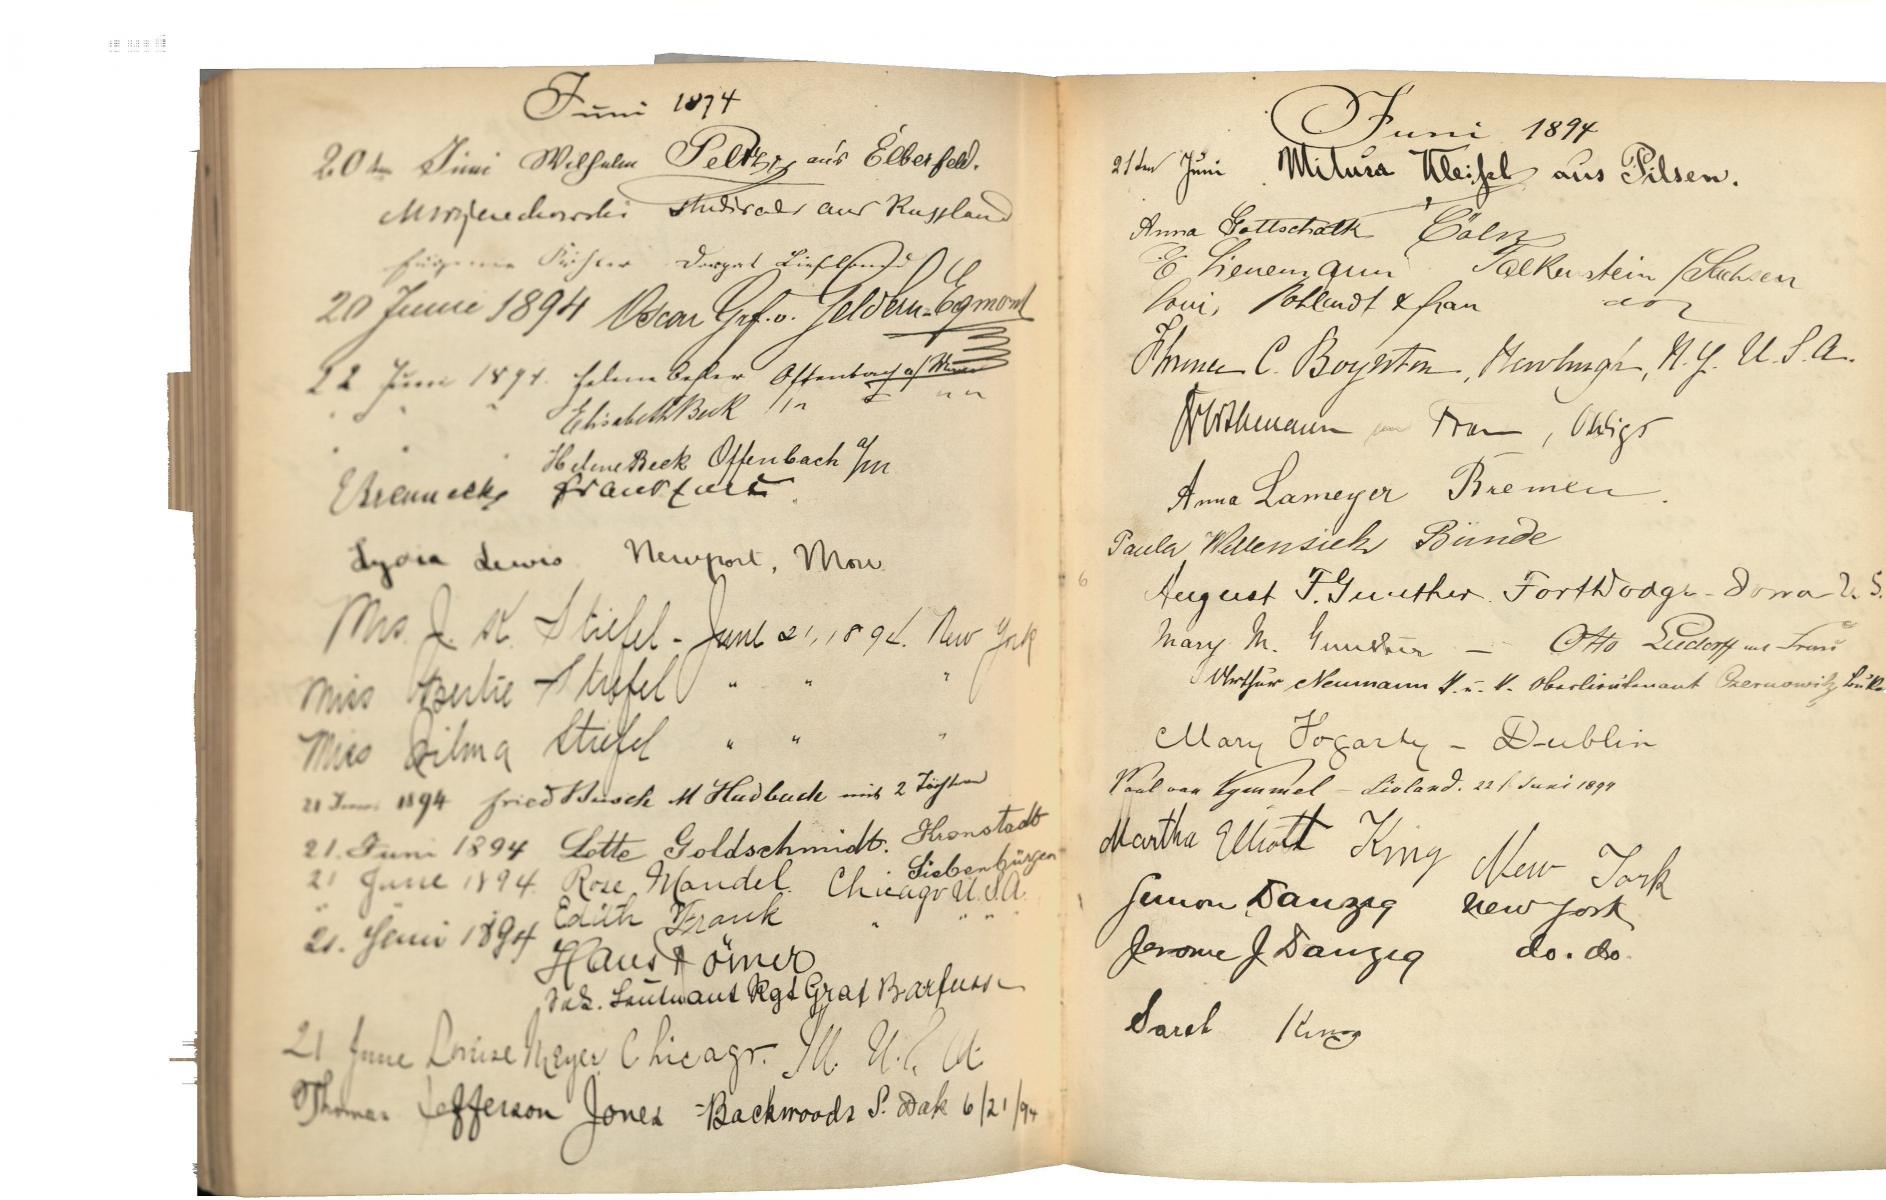 Juni 1894
20ten Juni Wilhelm aus Elberfeld.
aus Russland
Dorpat Liefland
20 June 1894 Oscar Grf. v. Geldern-Egmont
22 Juni 1894. Offenbach a/Main
" " " Elisabeth Beck " "
" " " Helene Beck Offenbach a/M
Frankfurt
Lydia Lewis Newport, Mon
Mrs. J. K. Stiefel - June 21, 1894. New York
Miss Bertie Stiefel " " "
Miss Stiefel " " "
21 Juni 1894 Fried Busch M'Gladbach mit 2 Töchter
21. Juni 1894 Lotte Goldschmidt. Kronstadt
Siebenbürgen
21 June 1894. Rose Mandel. Chicago U.S.A.
Edith Frank " " " "
21. Juni 1894
Hans Römer
Leutnant Rgt Graf Barfuss
21 June Louise Meyer Chicago. Ill. U.S.A.
Thomas Jefferson Jones - Backwoods S. Dak 6/21/94
Juni 1894
21ten Juni Milusa aus Pilsen.
Anna Gottschalk Cöln
E Lienemann Falkenstein /Sachsen
Pohlandt & frau do
C. Boynton, Newburgh, N.Y. U.S.A.
Frau, Ohligs
Anna Lameyer Bremen.
Paula Wellensiek Bünde
August F. Gunther. Fort Dodge - Iowa U. S.
Mary M. Gunther - Otto Ludorff und Frau
Arthur Neumann K. u. K. Oberlieutenant Czernowitz
Mary Fogarty - Dublin
Paul van Kymmel - Livland. 22/ Juni 1894
Martha Elliott King New York
Simon Danzig New York
Jerome J Danzig do. do.
Sarah King